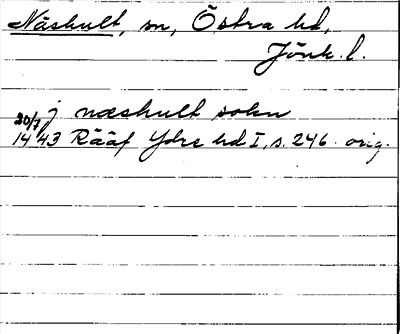 Näshult, sn, Östra hd,
Jönk. l.
j næshult sokn
20/7 1443 Rääf Ydre hd I, s. 246. orig.